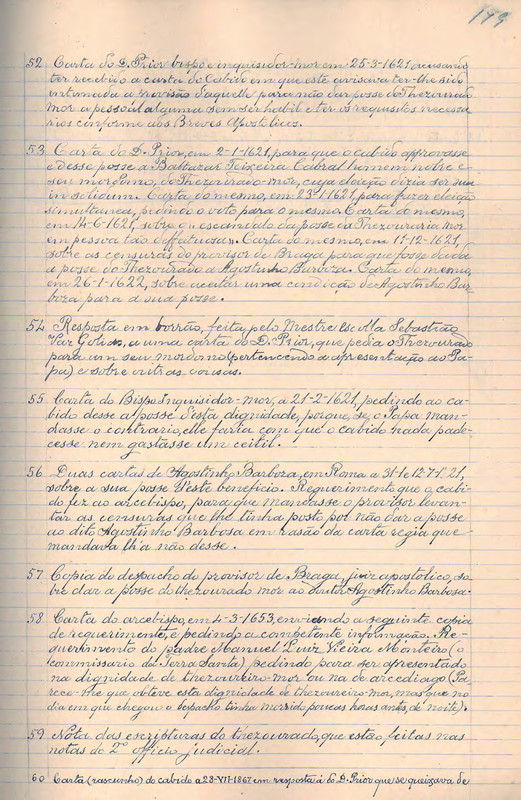 179
52 Carta do D. Prior bispo e inquisidor-mor em 25-3-1621, acusando
ter recebido a carta do Cabido em que este avisava ter-lhe sido
intimada a provisão daquelle para não dar posse do Thezourado
mor a pessoal alguma sem ser habil e ter os requisitos necessa-
rios conforme aos Breves Apostolicos.
53 Carta do D. Prior, em 2-1-1621, para que o cabido approvasse
e desse posse a Balthazar Teixeira Cabral homem nobre e
seu mordomo, do Thezourado-mor, cuja eleição dizia ser sua
in solidum. Carta do mesmo, em 23-1-1621, para fazer eleição
simultanea, pedindo o voto para o mesmo. Carta do mesmo,
em 14-6-1621, sobre o escandalo da posse da Thezouraria mor
em pessoa tão deffatuosa. Carta do mesmo, em 11-12-1621,
sobre as censuras do provisor de Braga para que fosse dada
a posse do Thezourado a Agostinho Barboza. Carta do mesmo,
em 26-1-1622, sobre aceitar uma condição de Agostinho Bar-
boza para a sua posse.
54 Resposta em borrão, feita pelo Mestre Escolla Sebastião
Vaz a uma carta do D. Prior, que pedia o Thezourado
para um seu mordomo (pertencendo a apresentação ao Pa-
pa) e sobre outras cousas.
55 Carta do Bispo Inquisidor-mor, a 21-2-1621, pedindo ao ca-
bido desse a posse d'esta dignidade, porque, se o Papa man-
dasse o contrario, elle faria com que o cabido nada pade-
cesse nem gastasse um ceitil.
56 Duas cartas de Agostinho Barboza, em Roma a 31-1 e 12-7-1621,
sobre a sua posse d'este beneficio. Requerimento que o cabi-
do fez ao arcebispo, para que mandasse o provisor levan-
tar as censuras que lhe tinha posto por não dar a posse
ao dito Agostinho Barbosa em rasão da carta regia que
mandava lh'a não desse.
57 Copia do despacho do provisor de Braga, juiz apostolico, so-
bre dar a posse do thezourado mor ao Doutor Agostinho Barbosa.
58 Carta do arcebispo, em 4-3-1653, enviando a seguinte copia
de requerimento, e pedindo a competente informação. Re-
querimento do padre Manuel Luiz Vieira Monteiro (o
commissario da Terra Santa) pedindo para ser apresentado
na dignidade de thezoureiro-mor ou na de arcediago (Pa-
rece-lhe que obteve esta dignidade de thezoureiro-mor, mas que no
dia em que chegou o despacho tinha morrido poucas horas antes, de noite).
59 Nota das escripturas do thezourado, que estão feitas nas
notas do 2º officio judicial.
60 Carta (rascunho) do cabido a 28-VII-1867 em resposta á do D. Prior que se queixava de